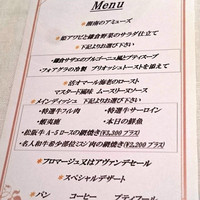 Menu
*湘南のアミューズ
*姫アワビと鎌倉野菜のサラダ仕立て
*下記よりお選び下さい
・鎌倉サザエのブルゴーニュ風とプティスープ
・フォアグラの冷製 ブリオッシュトーストを添えて
*活オマール海老のロースト
マスタード風味 ムースリーヌソース
*メインディッシュ 下記よりお選び下さい
・特選牛フィレ肉 ・特選牛サーロイン
・蝦夷鹿 ・本日の鮮魚
・松阪牛 A-5ロースの網焼き(¥3,200プラス)
・名人和牛希少部位(コメ)肉の網焼き(¥2,300プラス)
*フロマージュ又はアヴァンデセール
*スペシャルデザート
*パン コーヒー プティフール